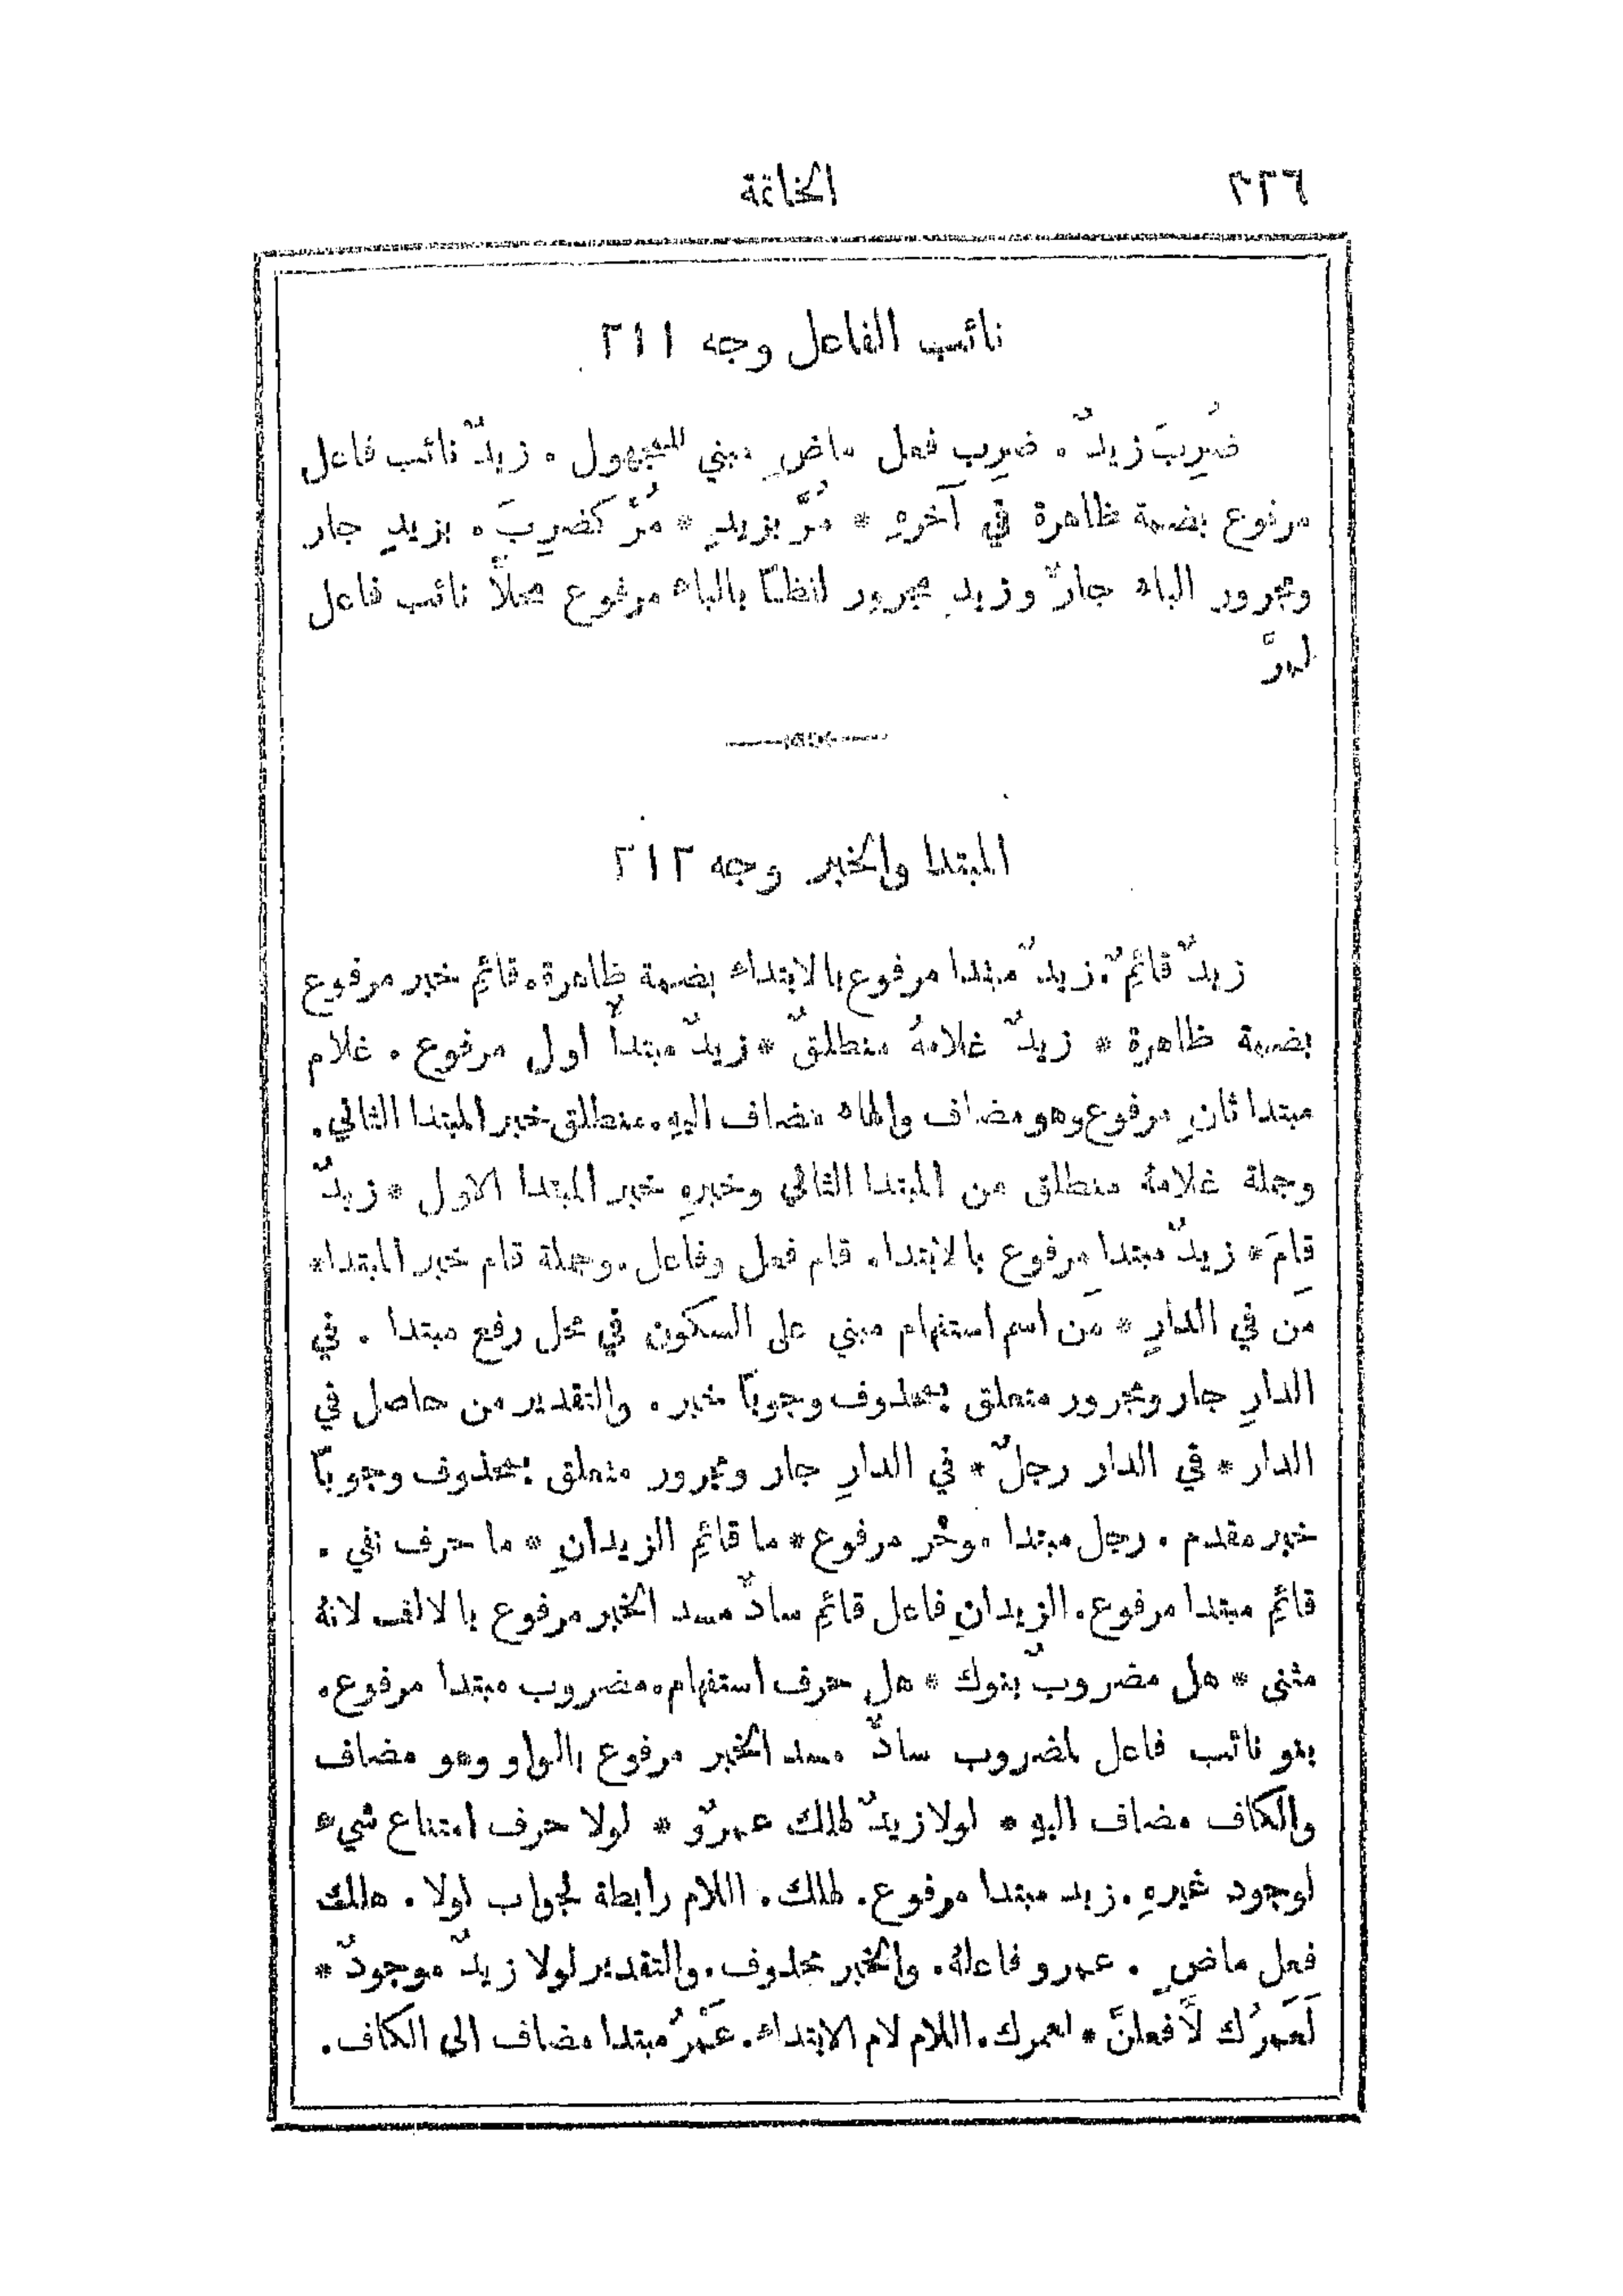 ٣٢٦
الخاتمة
نائب الفاعل وجه ٢١١
ضُرِبَ زيدٌ. ضرِب فعل ماضٍ مبني للمجهول. زيدٌ نائب فاعل
مرفوع بضمة ظاهرة في آخرهِ * مُرَّ بزيدٍ * مُرَّ كضرِبَ. بزيدٍ جار
ومجرور الباء جارٌّ وزيدٍ مجرور لفظًا بالباء مرفوع محلاً نائب فاعل
لمرَّ
المبتدا والخبر وجه ٢١٢
زيدٌ قائمٌ. زيدٌ مبتدا مرفوع بالابتداء بضمة ظاهرة. قائم خبر مرفوع
بضمة ظاهرة * زيدٌ غلامهُ منطلقٌ * زيدٌ مبتدأٌ اول مرفوع. غلام
مبتدا ثانٍ مرفوع وهو مضاف والهاء مضاف اليهِ. منطلق خبر المبتدا الثاني.
وجملة غلامهُ منطلق من المبتدا الثاني وخبرهِ خبر المبتدا الاول * زيدٌ
قامَ * زيدٌ مبتدا مرفوع بالابتداء. قام فعل وفاعل. وجملة قام خبر المبتدا*
مَن في الدارِ * مَن اسم استفهام مبني على السكون في محل رفع مبتدا. في
الدارِ جار ومجرور متعلق بمحذوف وجوبًا خبر. والتقدير من حاصل في
الدار * في الدار رجلٌ * في الدارِ جار ومجرور متعلق بمحذوف وجوبًا
خبر مقدم. رجل مبتدا موخَّر مرفوع * ما قائم الزيدانِ * ما حرف نفي.
قائم مبتدا مرفوع. الزيدانِ فاعل قائم سادٌّ مسد الخبر مرفوع بالالف لانهُ
مثنى * هل مضروبٌ بنوك * هل حرف استفهام. مضروب مبتدا مرفوع.
بنو نائب فاعل لمضروب سادٌّ مسد الخبر مرفوع بالواو وهو مضاف
والكاف مضاف اليهِ * لولا زيدٌ لهلك عمرٌو * لولا حرف امتناع شيء
لوجود غيرهِ. زيد مبتدا مرفوع. لهلك. اللام رابطة لجواب لولا. هلك
فعل ماضٍ. عمرو فاعلهُ. والخبر محذوف. والتقدير لولا زيدٌ موجودٌ *
لَعَمرُك لَأَفعلنَّ * لعمرك. اللام لام الابتداء. عَمْرُ مبتدا مضاف الى الكاف.